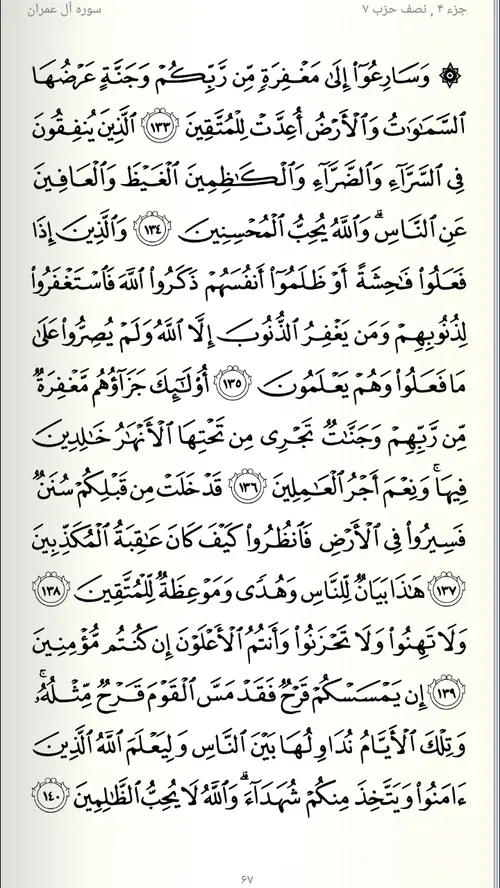 جزء ۴ , نصف حزب ۷
سوره آل عمران
۞ وَسَارِعُوٓاْ إِلَىٰ مَغْفِرَةٖ مِّن رَّبِّكُمْ وَجَنَّةٍ عَرْضُهَا
ٱلسَّمَٰوَٰتُ وَٱلْأَرْضُ أُعِدَّتْ لِلْمُتَّقِينَ ١٣٣ ٱلَّذِينَ يُنفِقُونَ
فِي ٱلسَّرَّآءِ وَٱلضَّرَّآءِ وَٱلْكَٰظِمِينَ ٱلْغَيْظَ وَٱلْعَافِينَ
عَنِ ٱلنَّاسِۗ وَٱللَّهُ يُحِبُّ ٱلْمُحْسِنِينَ ١٣٤ وَٱلَّذِينَ إِذَا
فَعَلُواْ فَٰحِشَةً أَوْ ظَلَمُوٓاْ أَنفُسَهُمْ ذَكَرُواْ ٱللَّهَ فَٱسْتَغْفَرُواْ
لِذُنُوبِهِمْ وَمَن يَغْفِرُ ٱلذُّنُوبَ إِلَّا ٱللَّهُ وَلَمْ يُصِرُّواْ عَلَىٰ
مَا فَعَلُواْ وَهُمْ يَعْلَمُونَ ١٣٥ أُوْلَٰٓئِكَ جَزَآؤُهُم مَّغْفِرَةٞ
مِّن رَّبِّهِمْ وَجَنَّٰتٞ تَجْرِي مِن تَحْتِهَا ٱلْأَنْهَٰرُ خَٰلِدِينَ
فِيهَاۚ وَنِعْمَ أَجْرُ ٱلْعَٰمِلِينَ ١٣٦ قَدْ خَلَتْ مِن قَبْلِكُمْ سُنَنٞ
فَسِيرُواْ فِي ٱلْأَرْضِ فَٱنظُرُواْ كَيْفَ كَانَ عَٰقِبَةُ ٱلْمُكَذِّبِينَ
١٣٧ هَٰذَا بَيَانٞ لِّلنَّاسِ وَهُدٗى وَمَوْعِظَةٞ لِّلْمُتَّقِينَ ١٣٨
وَلَا تَهِنُواْ وَلَا تَحْزَنُواْ وَأَنتُمُ ٱلْأَعْلَوْنَ إِن كُنتُم مُّؤْمِنِينَ
١٣٩ إِن يَمْسَسْكُمْ قَرْحٞ فَقَدْ مَسَّ ٱلْقَوْمَ قَرْحٞ مِّثْلُهُۥۚ
وَتِلْكَ ٱلْأَيَّامُ نُدَاوِلُهَا بَيْنَ ٱلنَّاسِ وَلِيَعْلَمَ ٱللَّهُ ٱلَّذِينَ
ءَامَنُواْ وَيَتَّخِذَ مِنكُمْ شُهَدَآءَۗ وَٱللَّهُ لَا يُحِبُّ ٱلظَّٰلِمِينَ ١٤٠
۶۷